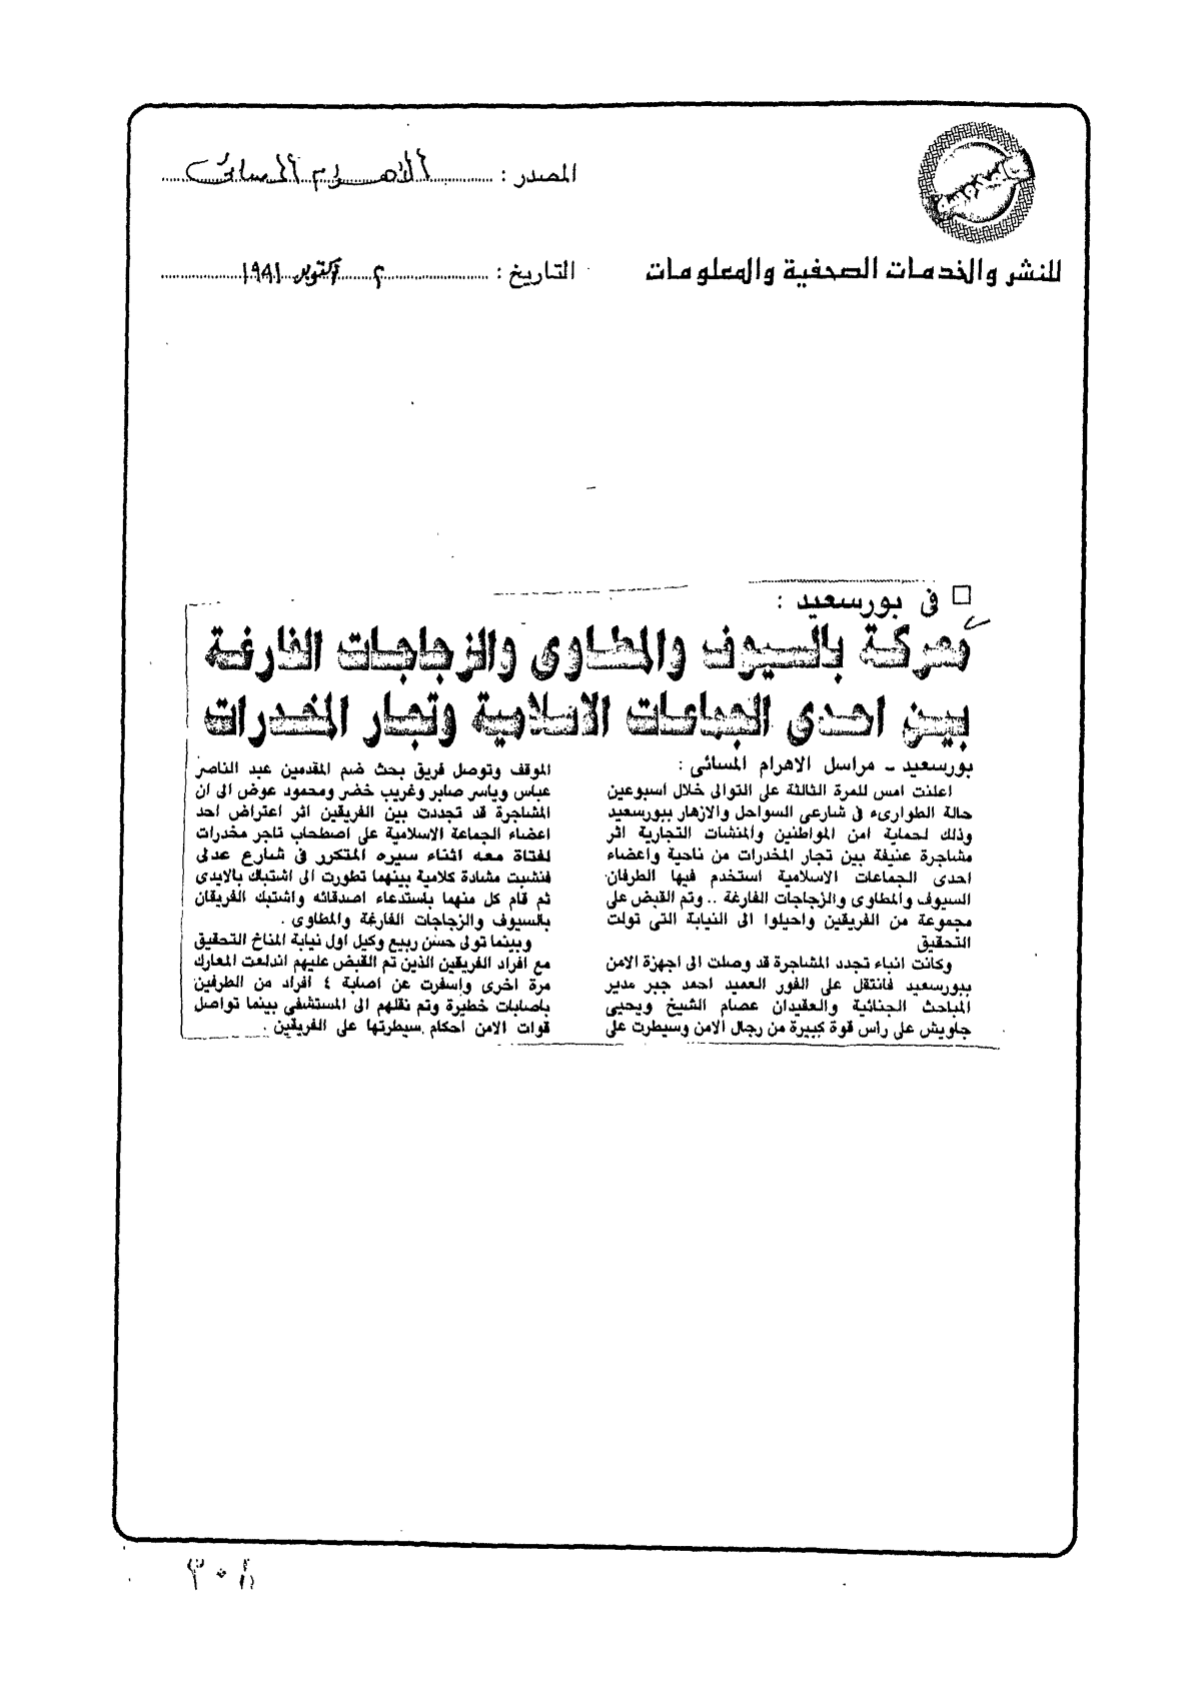 المصدر : الأهرام المسائى
للنشر والخدمات الصحفية والمعلومات
التاريخ : ٢ أكتوبر ١٩٩١
□ فى بورسعيد :
معركة بالسيوف والمطاوى والزجاجات الفارغة
بين احدى الجماعات الاسلامية وتجار المخدرات
بورسعيد - مراسل الاهرام المسائى :
اعلنت امس للمرة الثالثة على التوالى خلال اسبوعين
حالة الطوارىء فى شارعى السواحل والازهار ببورسعيد
وذلك لحماية امن المواطنين والمنشات التجارية اثر
مشاجرة عنيفة بين تجار المخدرات من ناحية واعضاء
احدى الجماعات الاسلامية استخدم فيها الطرفان
السيوف والمطاوى والزجاجات الفارغة .. وتم القبض على
مجموعة من الفريقين واحيلوا الى النيابة التى تولت
التحقيق
وكانت انباء تجدد المشاجرة قد وصلت الى اجهزة الامن
ببورسعيد فانتقل على الفور العميد احمد جبر مدير
المباحث الجنائية والعقيدان عصام الشيخ ويحيى
جاويش على راس قوة كبيرة من رجال الامن وسيطرت على
الموقف وتوصل فريق بحث ضم المقدمين عبد الناصر
عباس وياسر صابر وغريب خضر ومحمود عوض الى ان
المشاجرة قد تجددت بين الفريقين اثر اعتراض احد
اعضاء الجماعة الاسلامية على اصطحاب تاجر مخدرات
لفتاة معه اثناء سيره المتكرر فى شارع عدلى
فنشبت مشادة كلامية بينهما تطورت الى اشتباك بالايدى
ثم قام كل منهما باستدعاء اصدقائه واشتبك الفريقان
بالسيوف والزجاجات الفارغة والمطاوى .
وبينما تولى حسن ربيع وكيل اول نيابة المناخ التحقيق
مع افراد الفريقين الذين تم القبض عليهم اندلعت المعارك
مرة اخرى واسفرت عن اصابة ٤ افراد من الطرفين
باصابات خطيرة وتم نقلهم الى المستشفى بينما تواصل
قوات الامن احكام سيطرتها على الفريقين .
٣٠٨